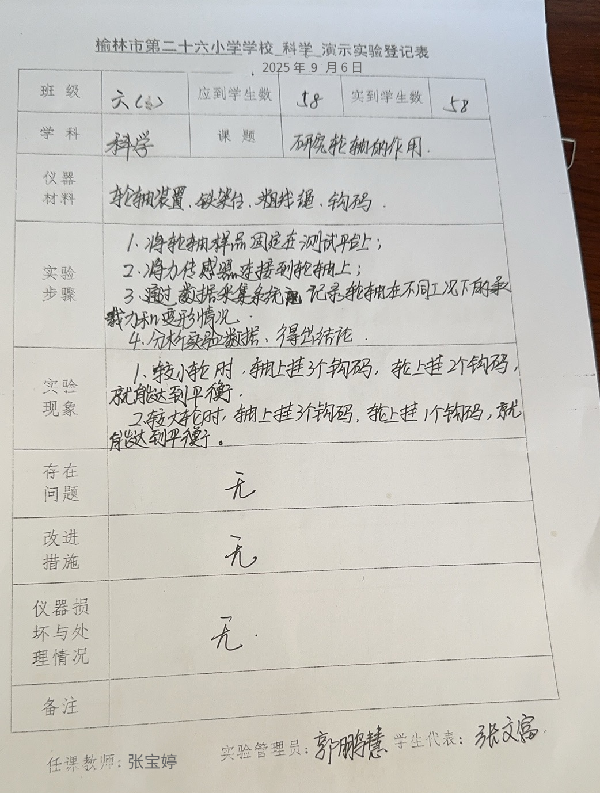 榆林市第二十六小学学校_科学_演示实验登记表
2025年9月6日
班级 六() 应到学生数 58 实到学生数 58
学科 科学 课题 研究轮轴的作用.
仪器材料 轮轴装置、铁架台、粗线绳、钩码.
实验步骤 1.将轮轴样品固定在测试平台上;
2.将力传感器连接到轮轴上;
3.通过数据采集系统记录轮轴在不同工况下的承
载力和变形情况.
4.分析实验数据、得出结论.
实验现象 1.较小轮时,轴上挂3个钩码,轮上挂2个钩码,
就能达到平衡.
2.较大轮时,轴上挂3个钩码,轮上挂1个钩码,就
能达到平衡。
存在问题 无
改进措施 无.
仪器损坏与处理情况 无.
备注
任课教师:张宝婷 实验管理员:郭鹏慧 学生代表:张文富